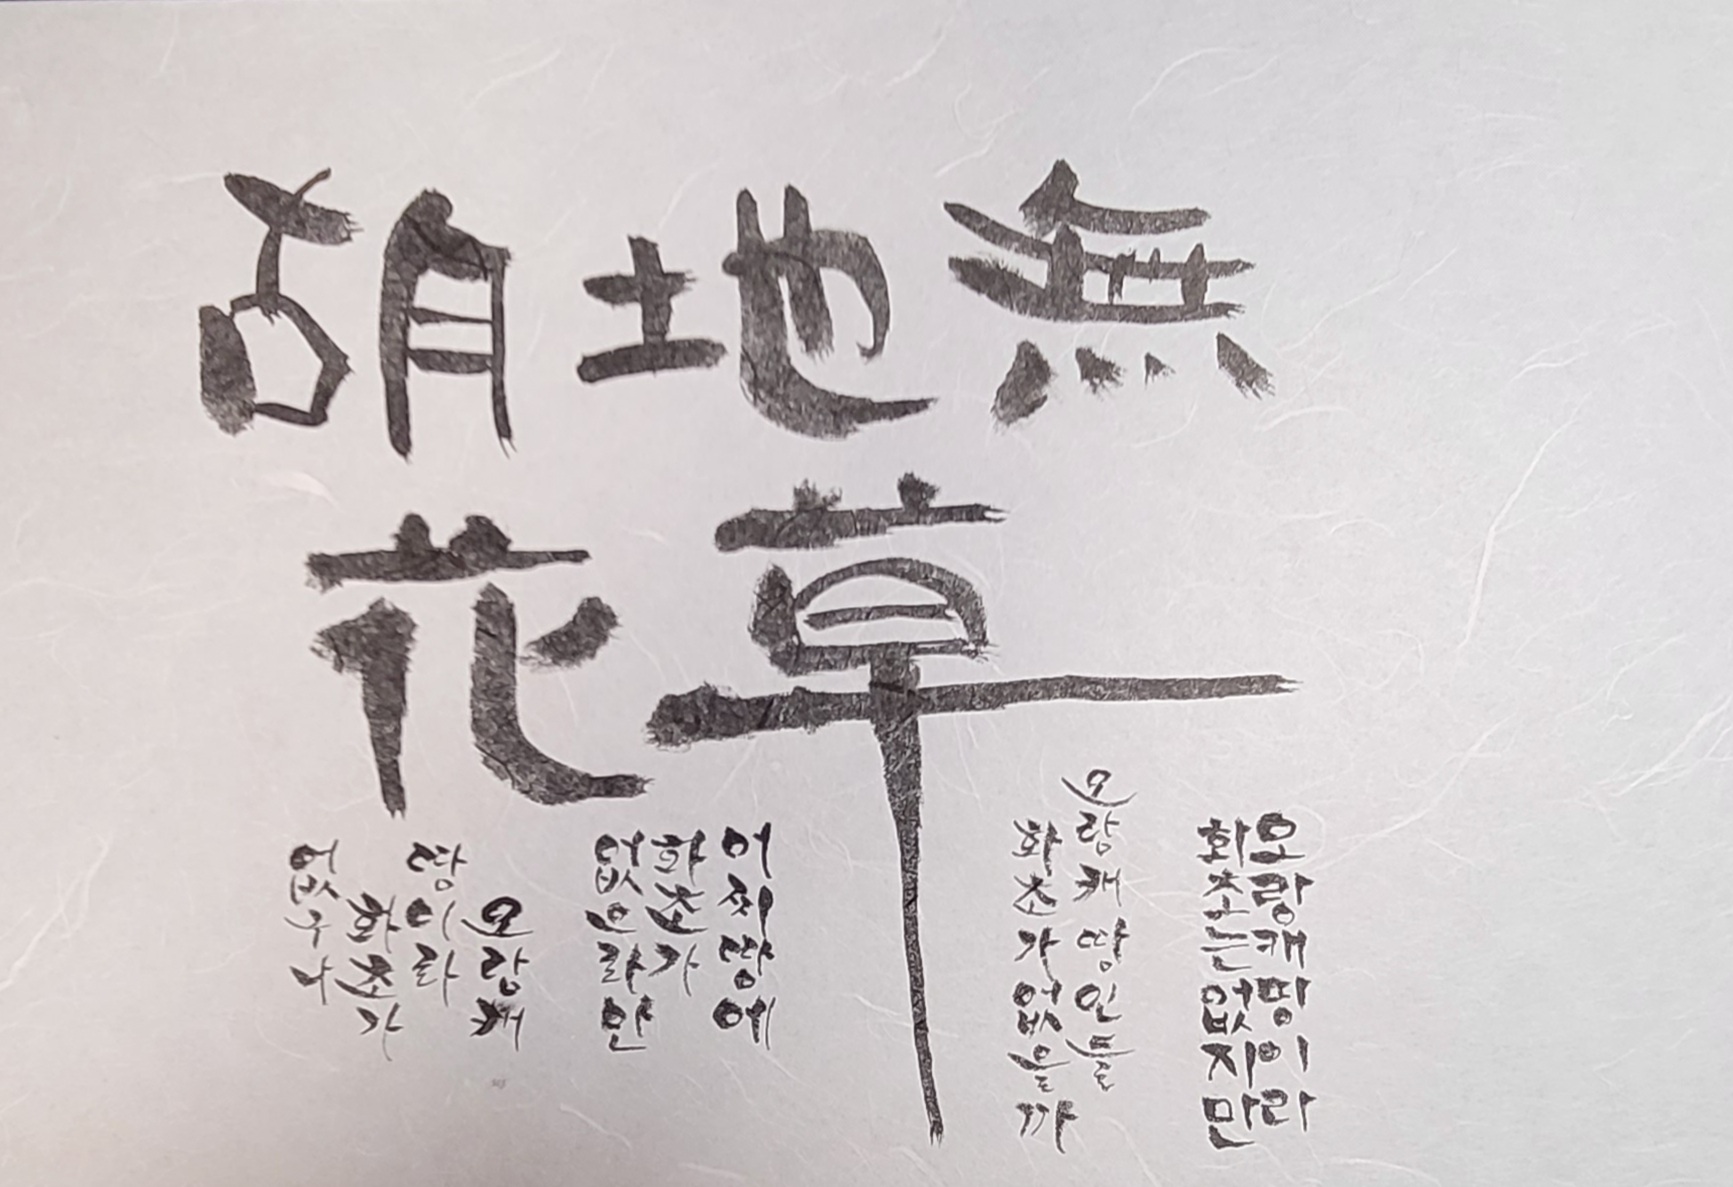 胡地無
花草
오랑캐땅이라
화초는없지만
오랑캐땅인들
화초가없을까
어찌땅에
화초가
없으랴만
오랑캐
땅이라
화초가
없구나